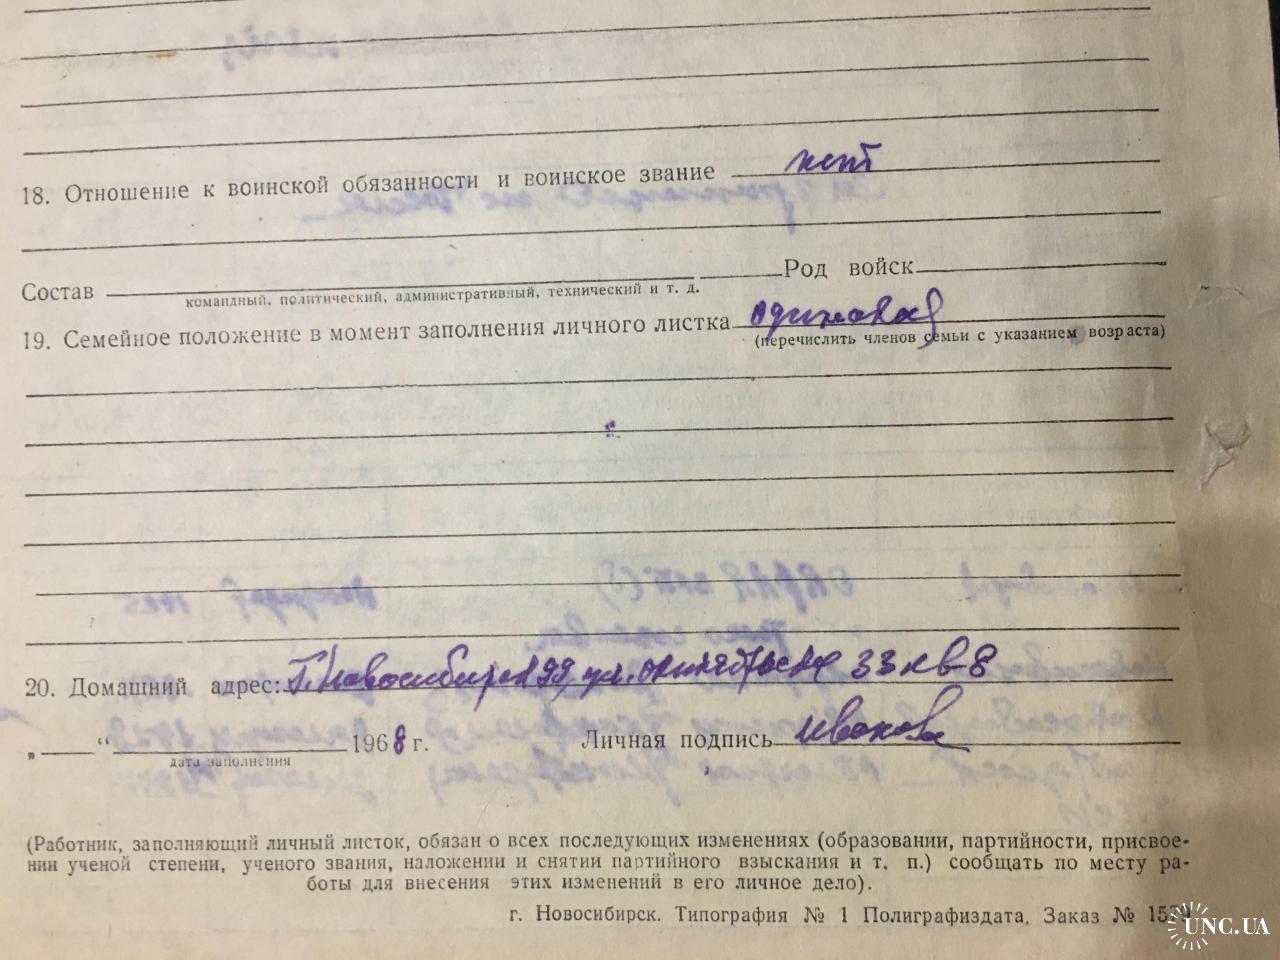 18. Отношение к воинской обязанности и воинское звание нет
Состав Род войск
командный, политический, административный, технический и т. д.
19. Семейное положение в момент заполнения личного листка одинокая
(перечислить членов семьи с указанием возраста)
20. Домашний адрес: Г. Новосибирск 99, ул. Октябрьская 33 кв-8
„ “ 1968 г. Личная подпись Иванова
дата заполнения
(Работник, заполняющий личный листок, обязан о всех последующих изменениях (образовании, партийности, присвое-
нии ученой степени, ученого звания, наложении и снятии партийного взыскания и т. п.) сообщать по месту ра-
боты для внесения этих изменений в его личное дело).
г. Новосибирск. Типография № 1 Полиграфиздата. Заказ №
UNC.UA